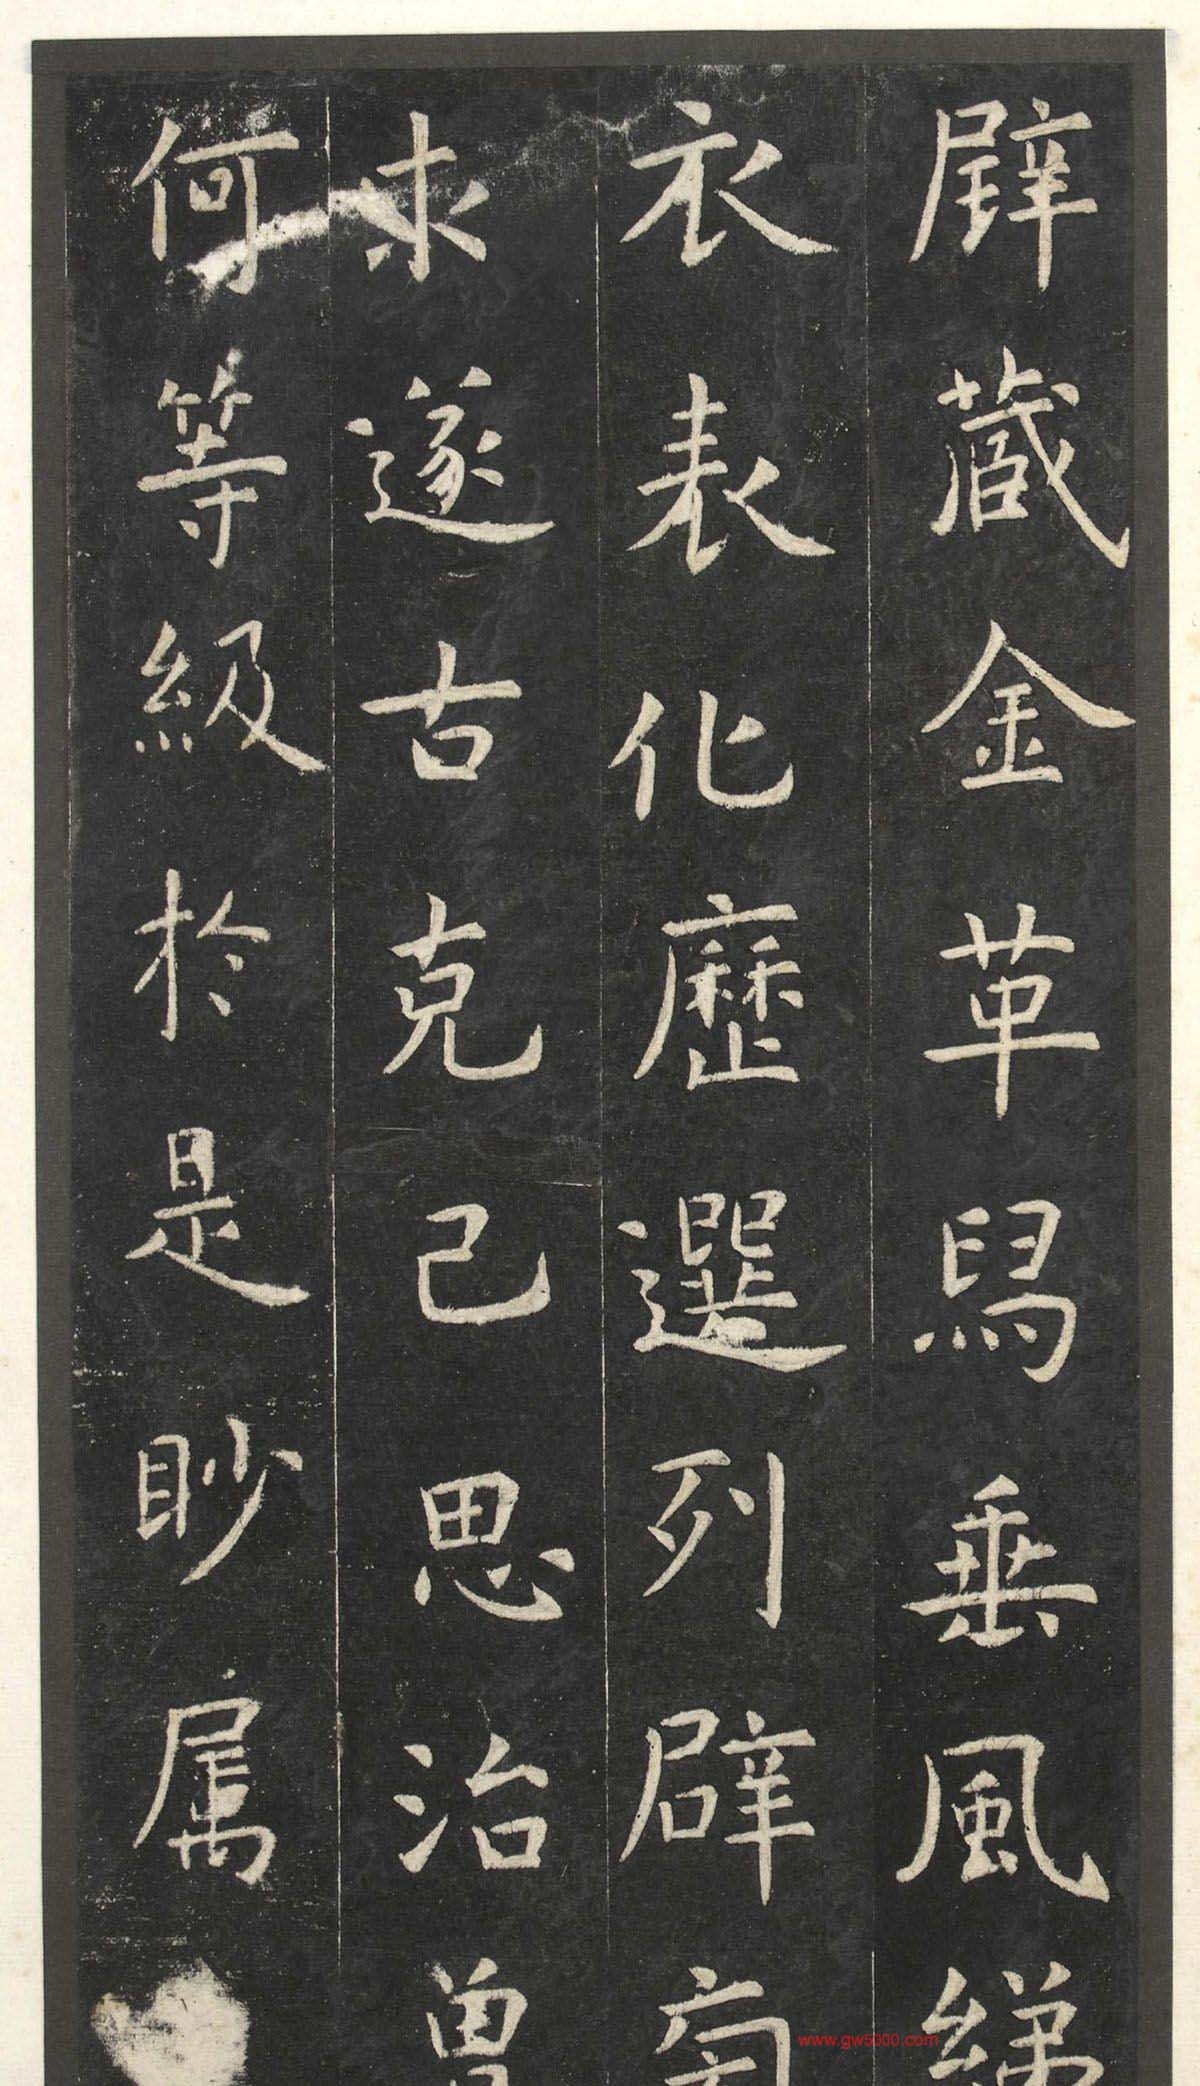 璧藏金革舄垂風綈
衣表化歷選列辟旁
求遂古克己思治曾
何等級於是眇屬
www.gw5000.com